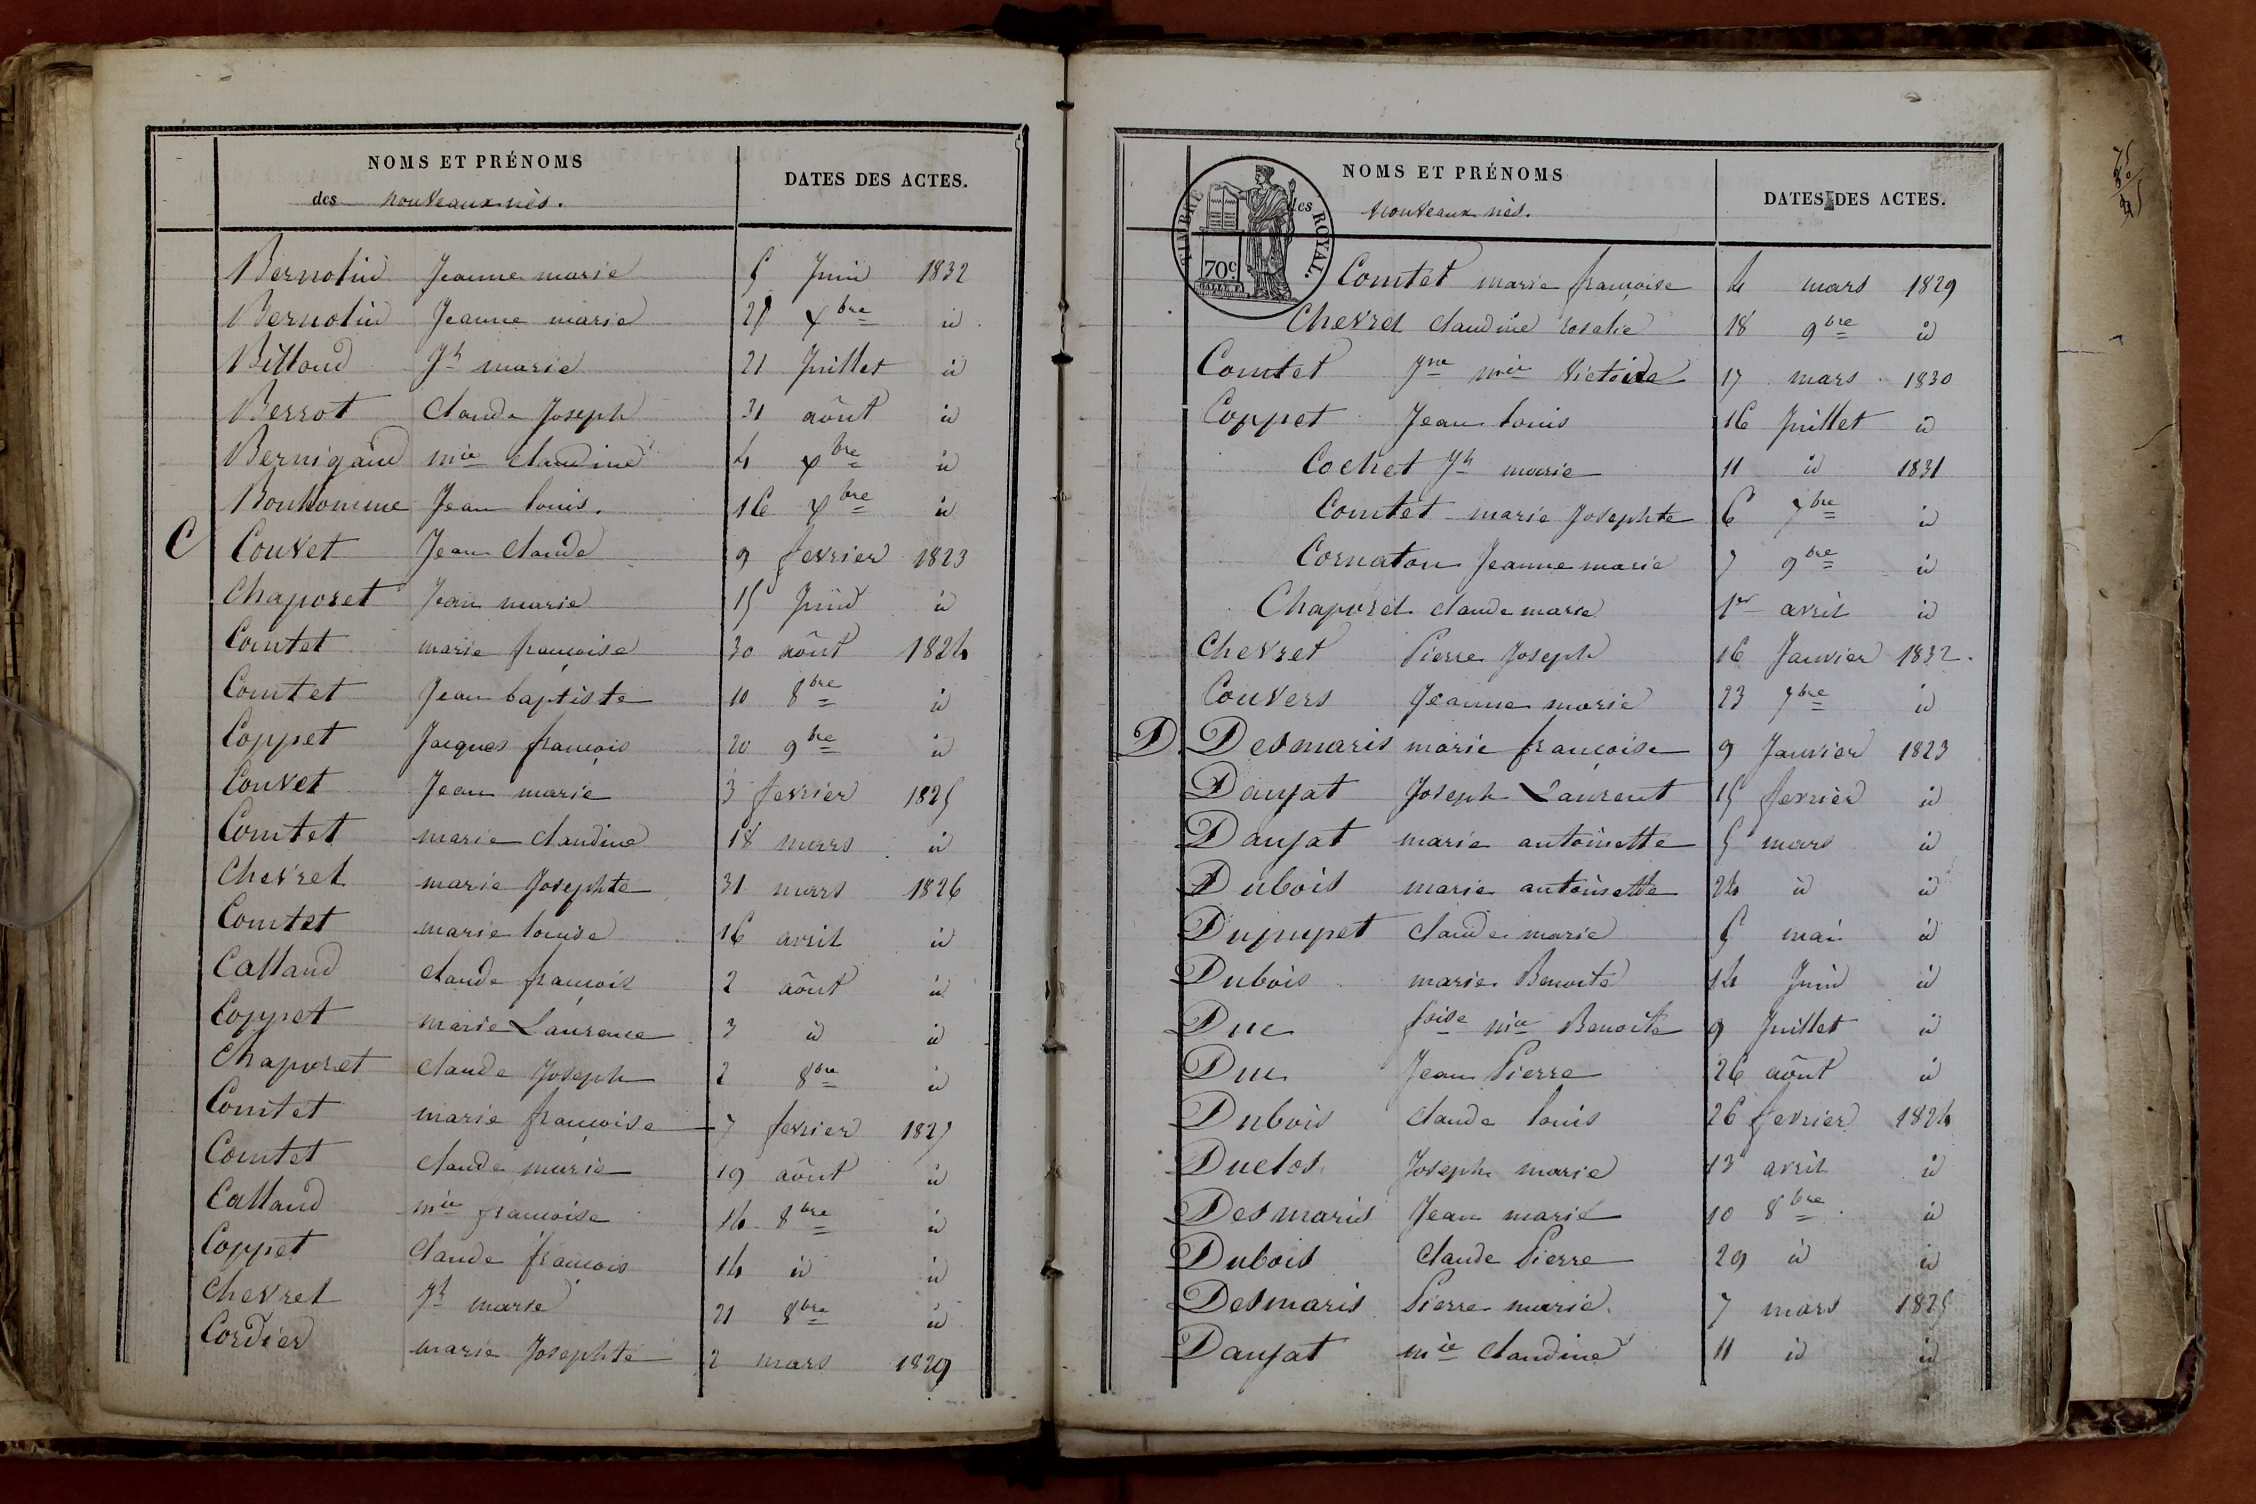 NOMS ET PRÉNOMS
des nouveaux nés.
DATES DES ACTES.
Bernolin Jeanne marie 5 Juin 1832
Bernolin Jeanne marie 25 Xbre id
Billoud Jh marie 21 Juillet id
Berrot Claude Joseph 31 août id
Bernigaud mie Claudine 4 Xbre id
Bonhomme Jean louis. 16 Xbre id
C Couvet Jean Claude 9 fevrier 1823
Chaporet Jean marie 15 Juin id
Comtet marie françoise 30 août 1824
Comtet Jean baptiste 10 8bre id
Coppet Jacques françois 20 9bre id
Couvet Jean marie 3 fevrier 1825
Comtet marie Claudine 18 mars id
Chevret marie Josephte 31 mars 1826
Comtet marie louise 16 avril id
Calland claude françois 2 août id
Coppet marie Laurence 3 id id
Chaporet claude Joseph 2 8bre id
Comtet marie françoise 7 fevrier 1827
Comtet claude marie 19 août id
Calland mie françoise 14 8bre id
Coppet claude françois 14 id id
Chevret Jh marie 21 8bre id
Cordier marie Josephte 2 mars 1829
NOMS ET PRÉNOMS
des nouveaux nés.
DATES DES ACTES.
TIMBRE ROYAL.
70c.
Comtet marie françoise 4 mars 1829
Chevret claudine rosalie 18 9bre id
Comtet Jne mie Victoire 17 mars 1830
Coppet Jean louis 16 Juillet id
Cochet Jh marie 11 id 1831
Comtet marie Josephte 6 7bre id
Cornaton Jeanne marie 7 9bre id
Chaporet claude marie 1er avril id
Chevret Pierre Joseph 16 Janvier 1832.
Couvers Jeanne marie 23 7bre id
D Desmaris marie françoise 9 Janvier 1823
Daujat Joseph Laurent 15 fevrier id
Daujat marie antoinette 5 mars id
Dubois marie antoinette 24 id id
Dupupet claude marie 5 mai id
Dubois marie Benoite 14 Juin id
Duc foise mie Benoite 9 Juillet id
Duc Jean Pierre 26 août id
Dubois claude louis 26 fevrier 1824
Duclos Joseph marie 13 avril id
Desmaris Jean marie 10 8bre id
Dubois Claude Pierre 29 id id
Desmaris Pierre marie. 7 mars 1825
Daujat mie Claudine 11 id id